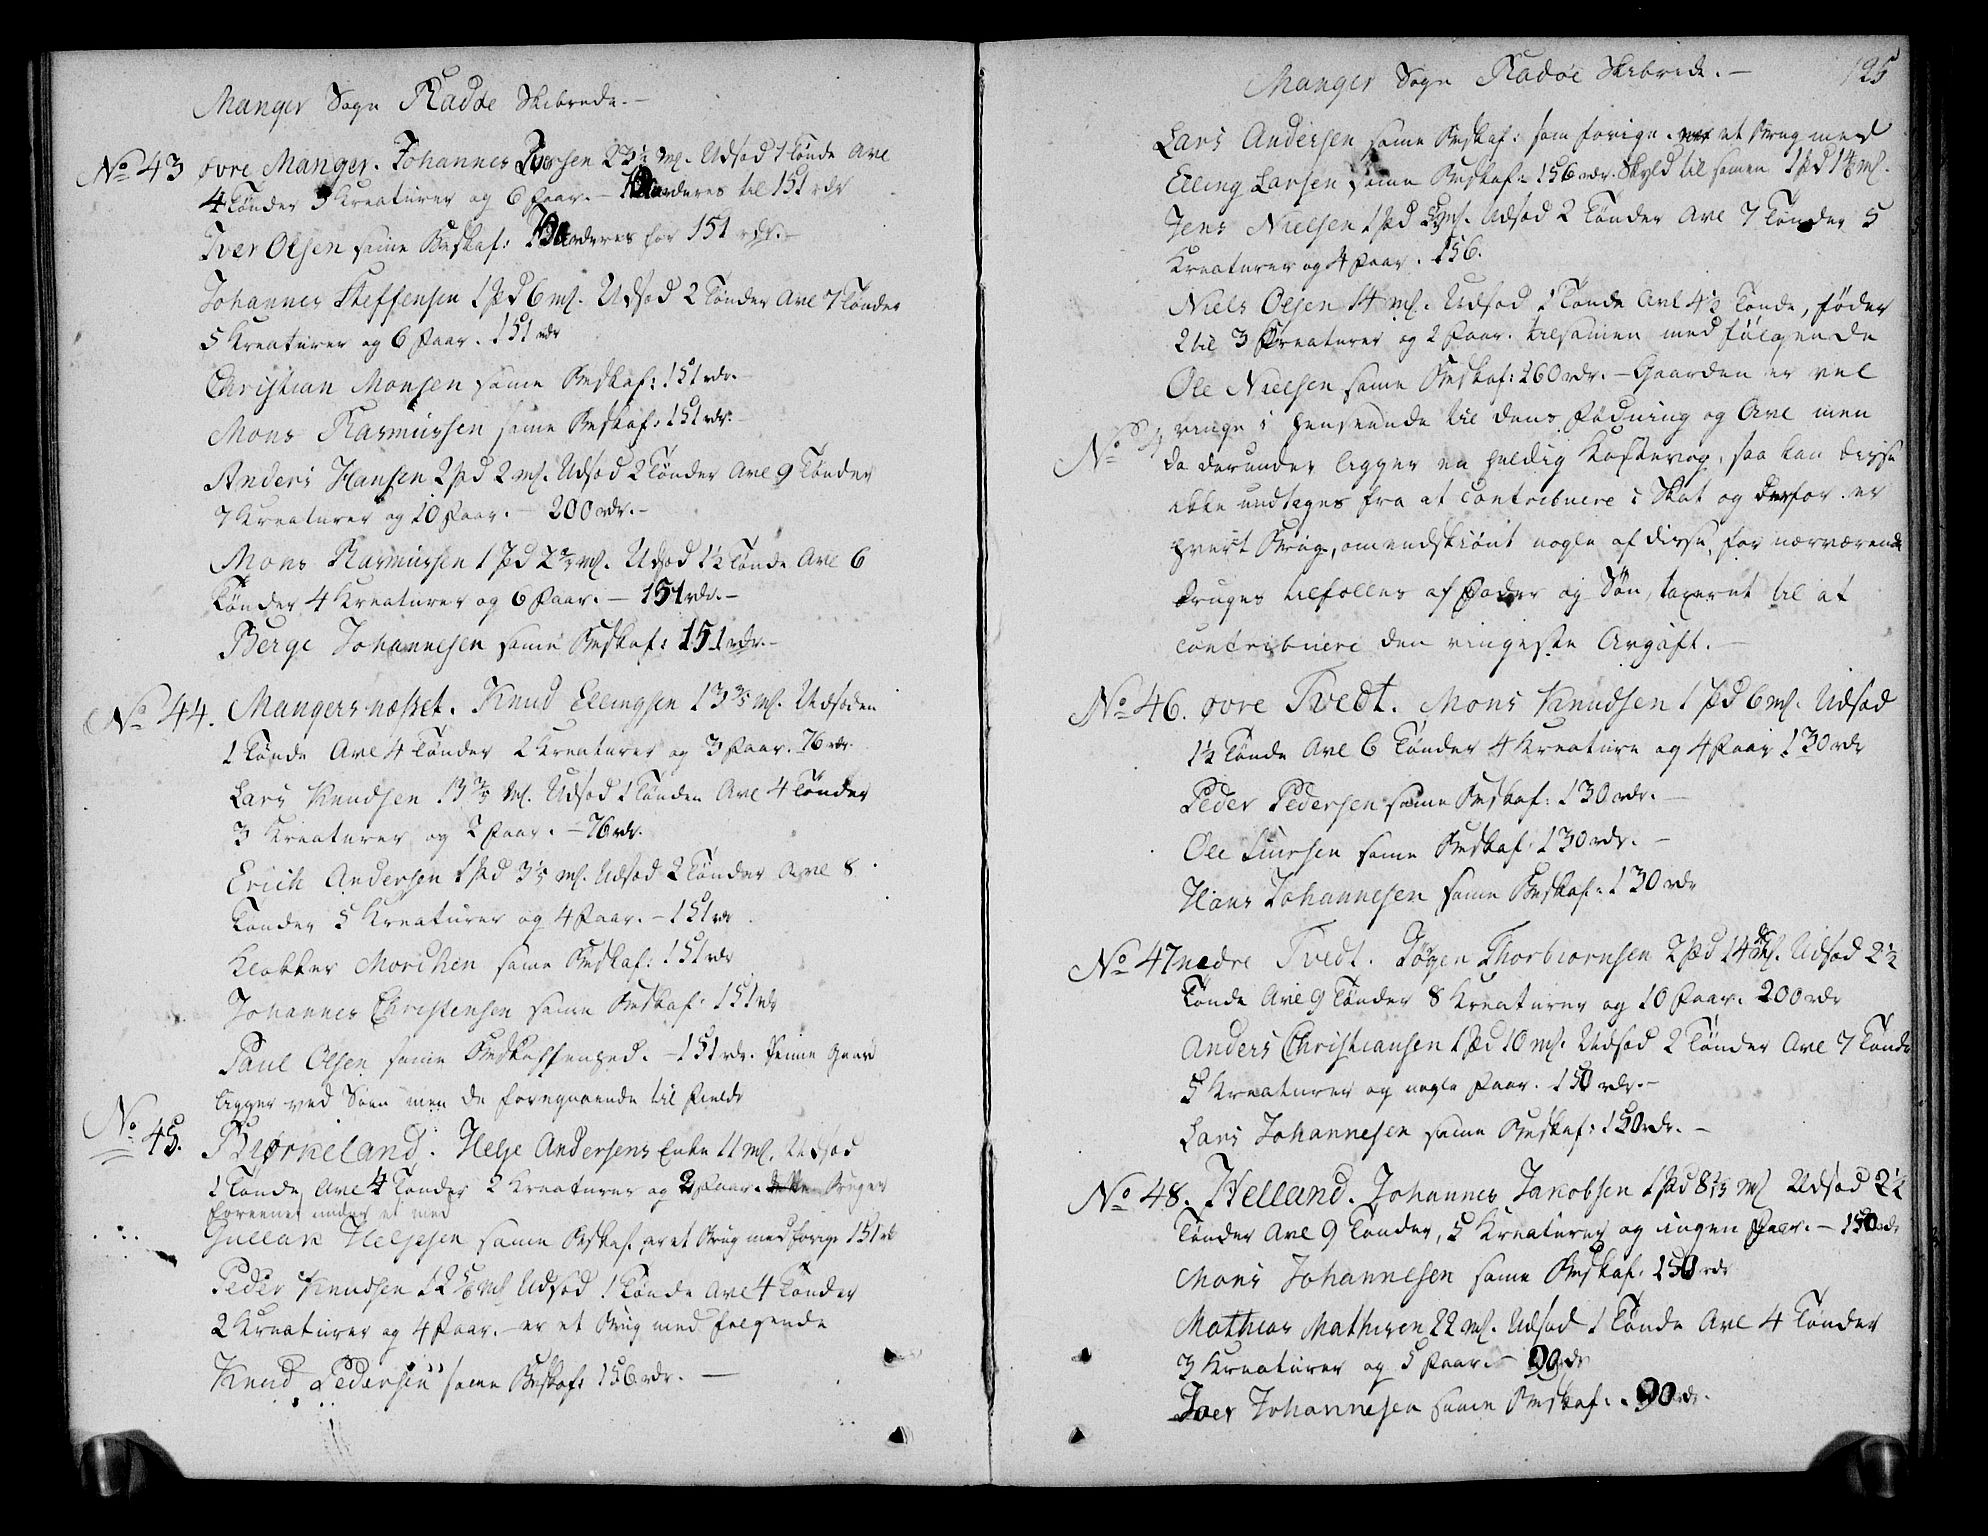 Manger Sogn Radøe Skibrede. —
No 43 øvre Manger. Johannes Iversen 23½ ml. Udsød 1 Tønde Avl
4 Tønder 3 Kreaturer og 6 Faar. — Vurderes til 151 rdr
Iver Olsen same Beskaf: Vurderes for 151 rdr. —
Johannes Steffensen 1 Pd 6 ml. Udsæd 2 Tønder Avl 7 Tønder
5 Kreaturer og 6 Faar. 151 rdr
Christian Monsen same Beskaf: 151 rdr. —
Mons Rasmussen same Beskaf: 151 rdr.
Anders Hansen 2 Pd 2 ml. Udsæd 2 Tønder Avl 9 Tønder
7 Kreaturer og 10 Faar. — 200 rdr. —
Mons Rasmussen 1 Pd 2 ml. Udsæd 1½ Tønde Avl 6
Tønder 4 Kreaturer og 6 Faar. — 151 rdr. —
Berge Johannesen same Beskaf: 151 rdr. —
No 44. Mangersnæsset. Knud Ellingsen 13 ml. Udsæden
1 Tønde Avl 4 Tønder 2 Kreaturer og 3 Faar. 76 rdr.
Lars Knudsen 13 ml. Udsæd 1 Tønden Avl 4 Tønder
3 Kreaturer og 2 Faar. — 76 rdr.
Erich Andersen 1 Pd 3 ml. Udsæd 2 Tønder Avl 8
Tønder 5 Kreaturer og 4 Faar. — 151 rdr
Klokker Morchen same Beskaf: 151 rdr
Johannes Christensen same Beskaf: 151 rdr
Paul Olsen same Beskaffenhed. — 151 rdr. Denne Gaard
ligger ved Søen men de foregaaende til Fields
No 45. Biørkeland. Helje Andersens Enke 11 ml. Udsæd
1 Tønde Avl 4 Tønder 2 Kreaturer og 2 Faar. Bruger
foreenet under et med
Gullak Heljesen same Beskaf. er et Brug med forige 151 rdr
Peder Knudsen 12 ml Udsæd 1 Tønde Avl 4 Tønder
2 Kreaturer og 4 Faar. — er et Brug med følgende
Knud Pedersen same Beskaf: 156 rdr. —
Manger Sogn Radøe Skibrede. — 125
Lars Andersen same Beskaf: som forige. et Brug med
Elling Larsen same Beskaf: 156 rdr. Skyld til samen 1 Pd 14 ml.
Jens Nielsen 1 Pd ml. Udsæd 2 Tønder Avl 7 Tønder 5
Kreaturer og 4 Faar. 156.
Niels Olsen 14 ml. Udsæd 1 Tønde Avl 4½ Tønde, føder
2 til 3 Kreaturer og 2 Faar. tilsamen med følgende
Ole Nielsen same Beskaf: 160 rdr. — Gaarden er vel
No ringe i henseende til dens Fødning og Avl men
da derunder ligger en heldig Kastevog, saa kan disse
ikke undtages fra at contribuere i Skat og derfor er
hvert Brug, omendskiønt nogle af disse, for nærværende
bruges tilfælles af Fader og Søn, taxeret til at
contribuere den ringeste Avgift. —
No 46. øvre Tvedt. Mons Knudsen 1 Pd 6 ml. Udsæd
1½ Tønde Avl 6 Tønder 4 Kreature og 4 Faar 130 rdr
Peder Pedersen same Beskaf: 130 rdr. —
Ole Siursen same Beskaf: 130 rdr. —
Hans Johannesen same Beskaf: 130 rdr
No 47 nedre Tvedt. Jørgen Thorbiørnsen 2 Pd 14 ml. Udsæd 2½
Tønde Avl 9 Tønder 8 Kreaturer og 10 Faar. 200 rdr
Anders Christiansen 1 Pd 10 ml. Udsæd 2 Tønder Avl 7 Tønde
5 Kreaturer og nogle Faar. 150 rdr. —
Lars Johannesen same Beskaf: 150 rdr. —
No 48. Helland. Johannes Jakobsen 1 Pd 8 ml Udsæd 2½
Tønder Avl 9 Tønder, 5 Kreaturer og ingen Faar. — 150 rdr
Mons Johannesen same Beskaf: 150 rdr
Mathias Mathisen 22 ml. Udsæd 1 Tønde Avl 4 Tønder
3 Kreaturer og 5 Faar. — 90 rdr
Iver Johannesen same Beskaf. . 90 rdr.